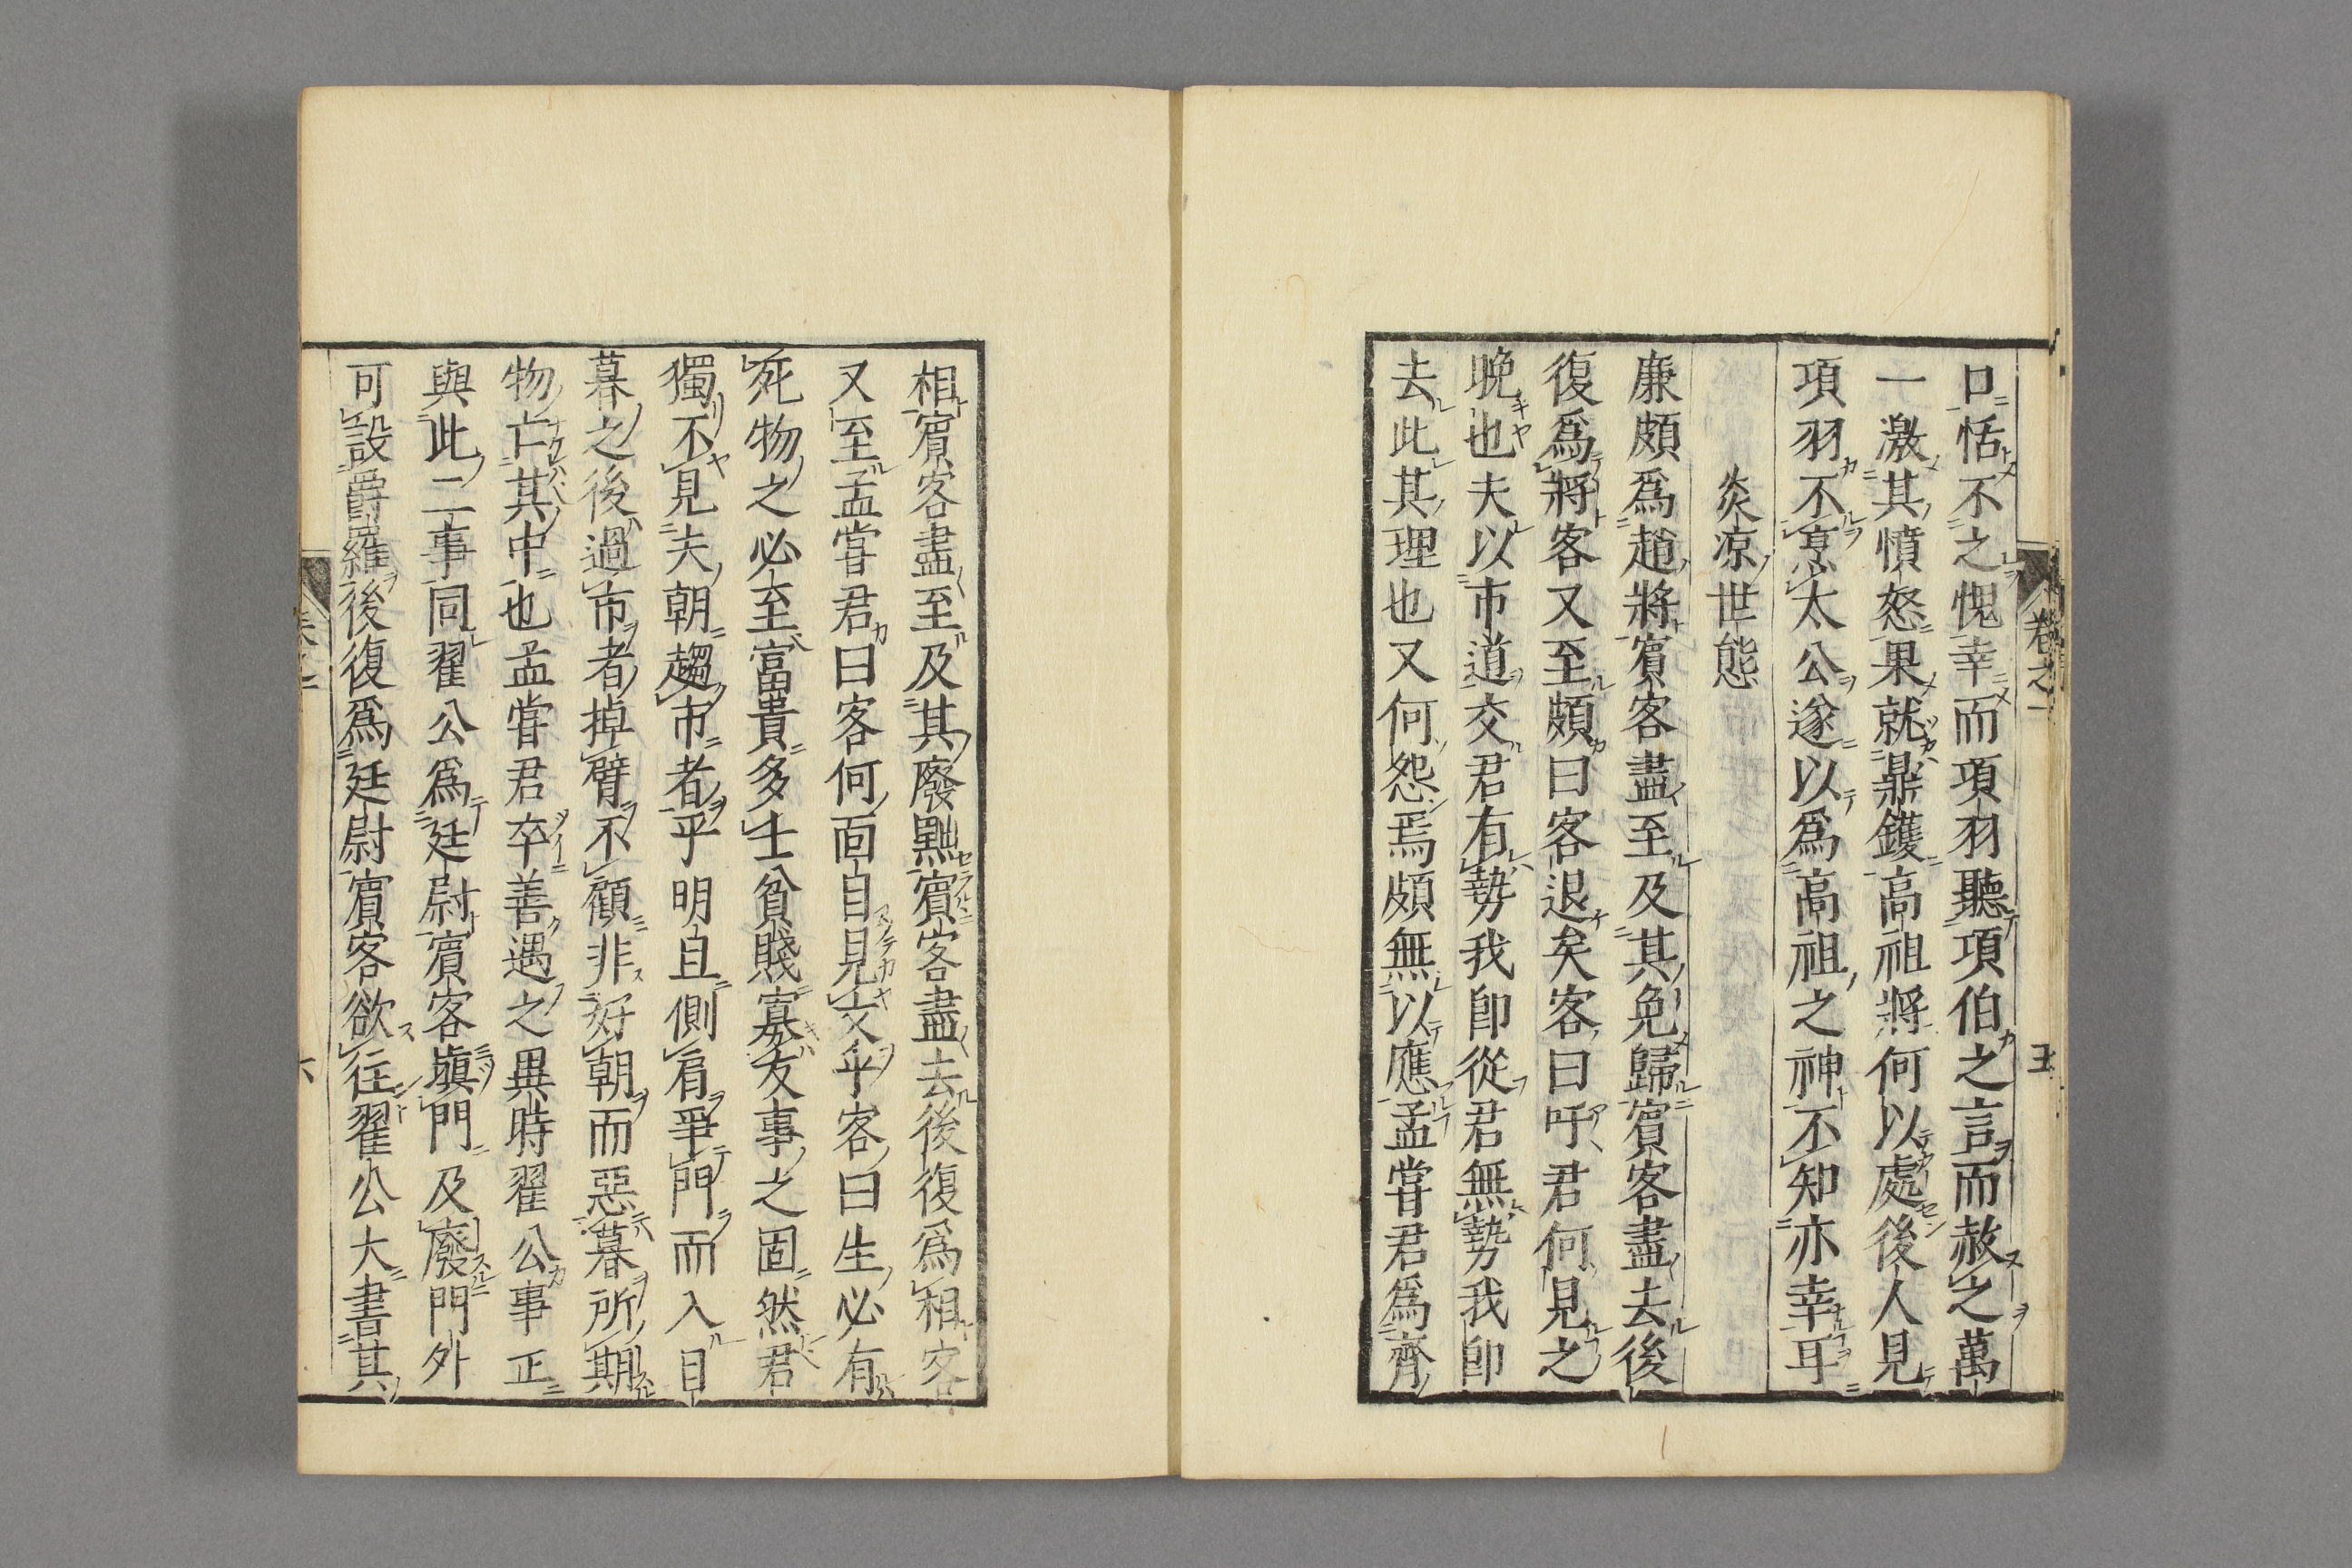 口恬不之愧幸而項羽聽項伯之言而赦之萬
一激其憤怒果就鼎鑊高祖將何以處後人見
項羽不烹太公遂以爲高祖之神不知亦幸耳
炎凉世態
廉頗爲趙將賓客盡至及其免歸賓客盡去後
復爲將客又至頗曰客退矣客曰吁君何見之
晩也夫以市道交君有勢我卽從君無勢我卽
去此其理也又何怨焉頗無以應孟嘗君爲齊
卷之一
五
相賓客盡至及其廢黜賓客盡去後復爲相客
又至孟嘗君曰客何面目見文乎客曰生必有
死物之必至富貴多士貧賤寡友事之固然君
獨不見夫朝趨市者乎明旦側肩爭門而入日
暮之後過市者掉臂不顧非好朝而惡暮所期
物亡其中也孟嘗君卒善遇之異時翟公事正
與此二事同翟公爲廷尉賓客塡門及廢門外
可設爵羅後復爲廷尉賓客欲往翟公大書其
六